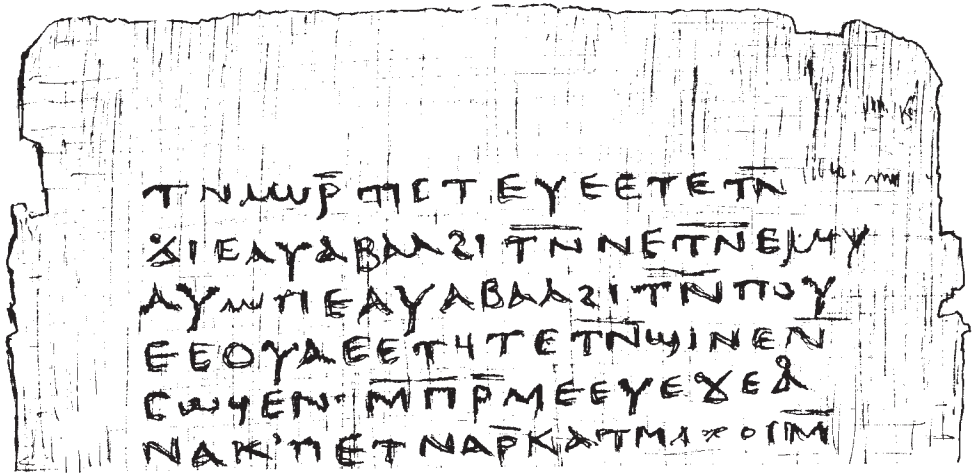 ⲧⲛⲁϣⲣ̄ⲡⲓⲥⲧⲉⲩⲉⲉⲧⲉⲧⲛ̄
ϫⲓⲉⲁⲩⲁⲃⲁⲗϩⲓⲧⲛ̄ⲛⲉⲧⲛ̄ⲉⲣⲏⲩ
ⲁⲩⲱⲡⲉⲁⲩⲁⲃⲁⲗϩⲓⲧⲛ̄ⲡⲟⲩ
ⲉⲉⲟⲩⲁⲉⲉⲧϥⲧⲉⲧⲛ̄ϣⲓⲛⲉⲛ̄
ⲥⲱϥⲉⲛ· ⲙ̄ⲡⲣ̄ⲙⲉⲉⲩⲉϫⲉⲁ
ⲛⲁⲕ’ⲡⲉⲧⲛⲁⲣ̄ⲕⲁⲧⲏⲅⲟⲣⲓⲙ̄